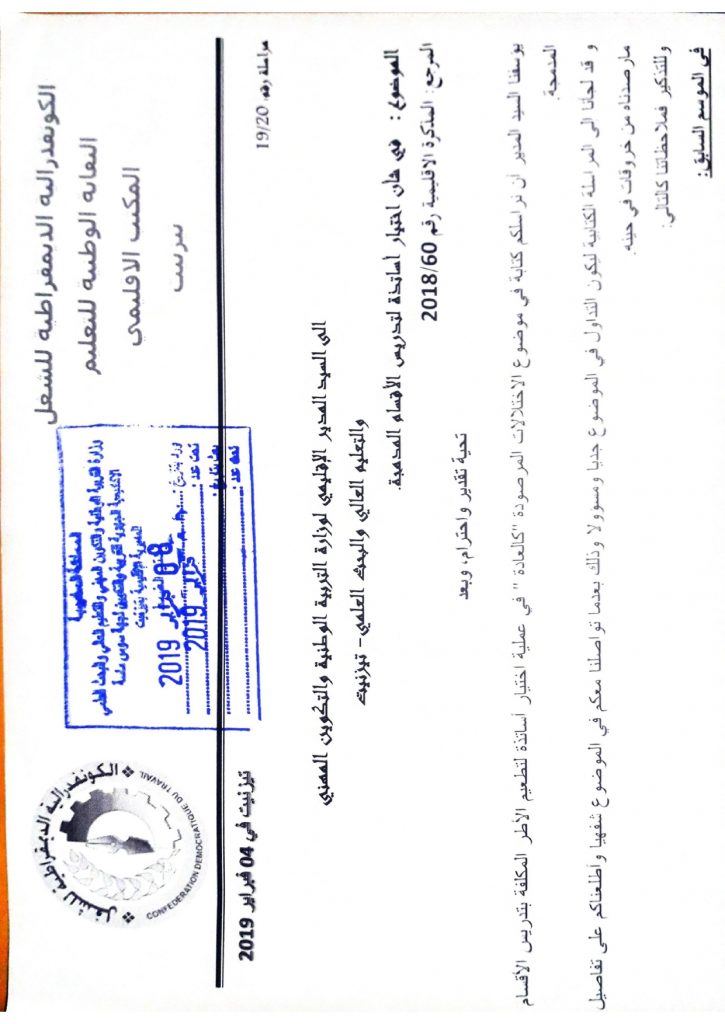 الكونفدرالية الديمقراطية للشغل
النقابة الوطنية للتعليم
المكتب الاقليمي
تيزنيت
الكونفدرالية الديمقراطية للشغل
CONFEDERATION DEMOCRATIQUE DU TRAVAIL
المملكة المغربية
وزارة التربية الوطنية والتكوين المهني والتعليم العالي والبحث العلمي
الأكاديمية الجهوية للتربية والتكوين لجهة سوس ماسة
المديرية الإقليمية بتيزنيت
ورد بتاريخ:
08 فبراير 2019
فبراير 2019
تحت عدد:
تحت عدد:
مراسلة رقم 19/20
تيزنيت في 04 فبراير 2019
الى السيد المدير الإقليمي لوزارة التربية الوطنية والتكوين المهني
والتعليم العالي والبحث العلمي- تيزنيت
الموضوع: في شان اختيار أساتذة لتدريس الأقسام المدمجة.
المرجع: المذكرة الاقليمية رقم 2018/60
تحية تقدير واحترام، وبعد
يؤسفنا السيد المدير ان نراسلكم كتابة في موضوع الاختلالات المرصودة "كالعادة " في عملية اختيار أساتذة لتطعيم الأطر المكلفة بتدريس الأقسام
المدمجة.
و قد لجأنا الى المراسلة الكتابية ليكون التداول في الموضوع جديا ومسؤولا وذلك بعدما تواصلنا معكم في الموضوع شفهيا وأطلعناكم على تفاصيل
مارصدناه من خروقات في حينه.
وللتذكير فملاحظاتنا كالتالي:
في الموسم السابق: